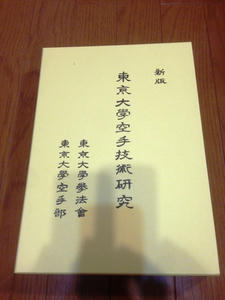 新版
東京大學空手技術研究
東京大學拳法會
東京大學空手部